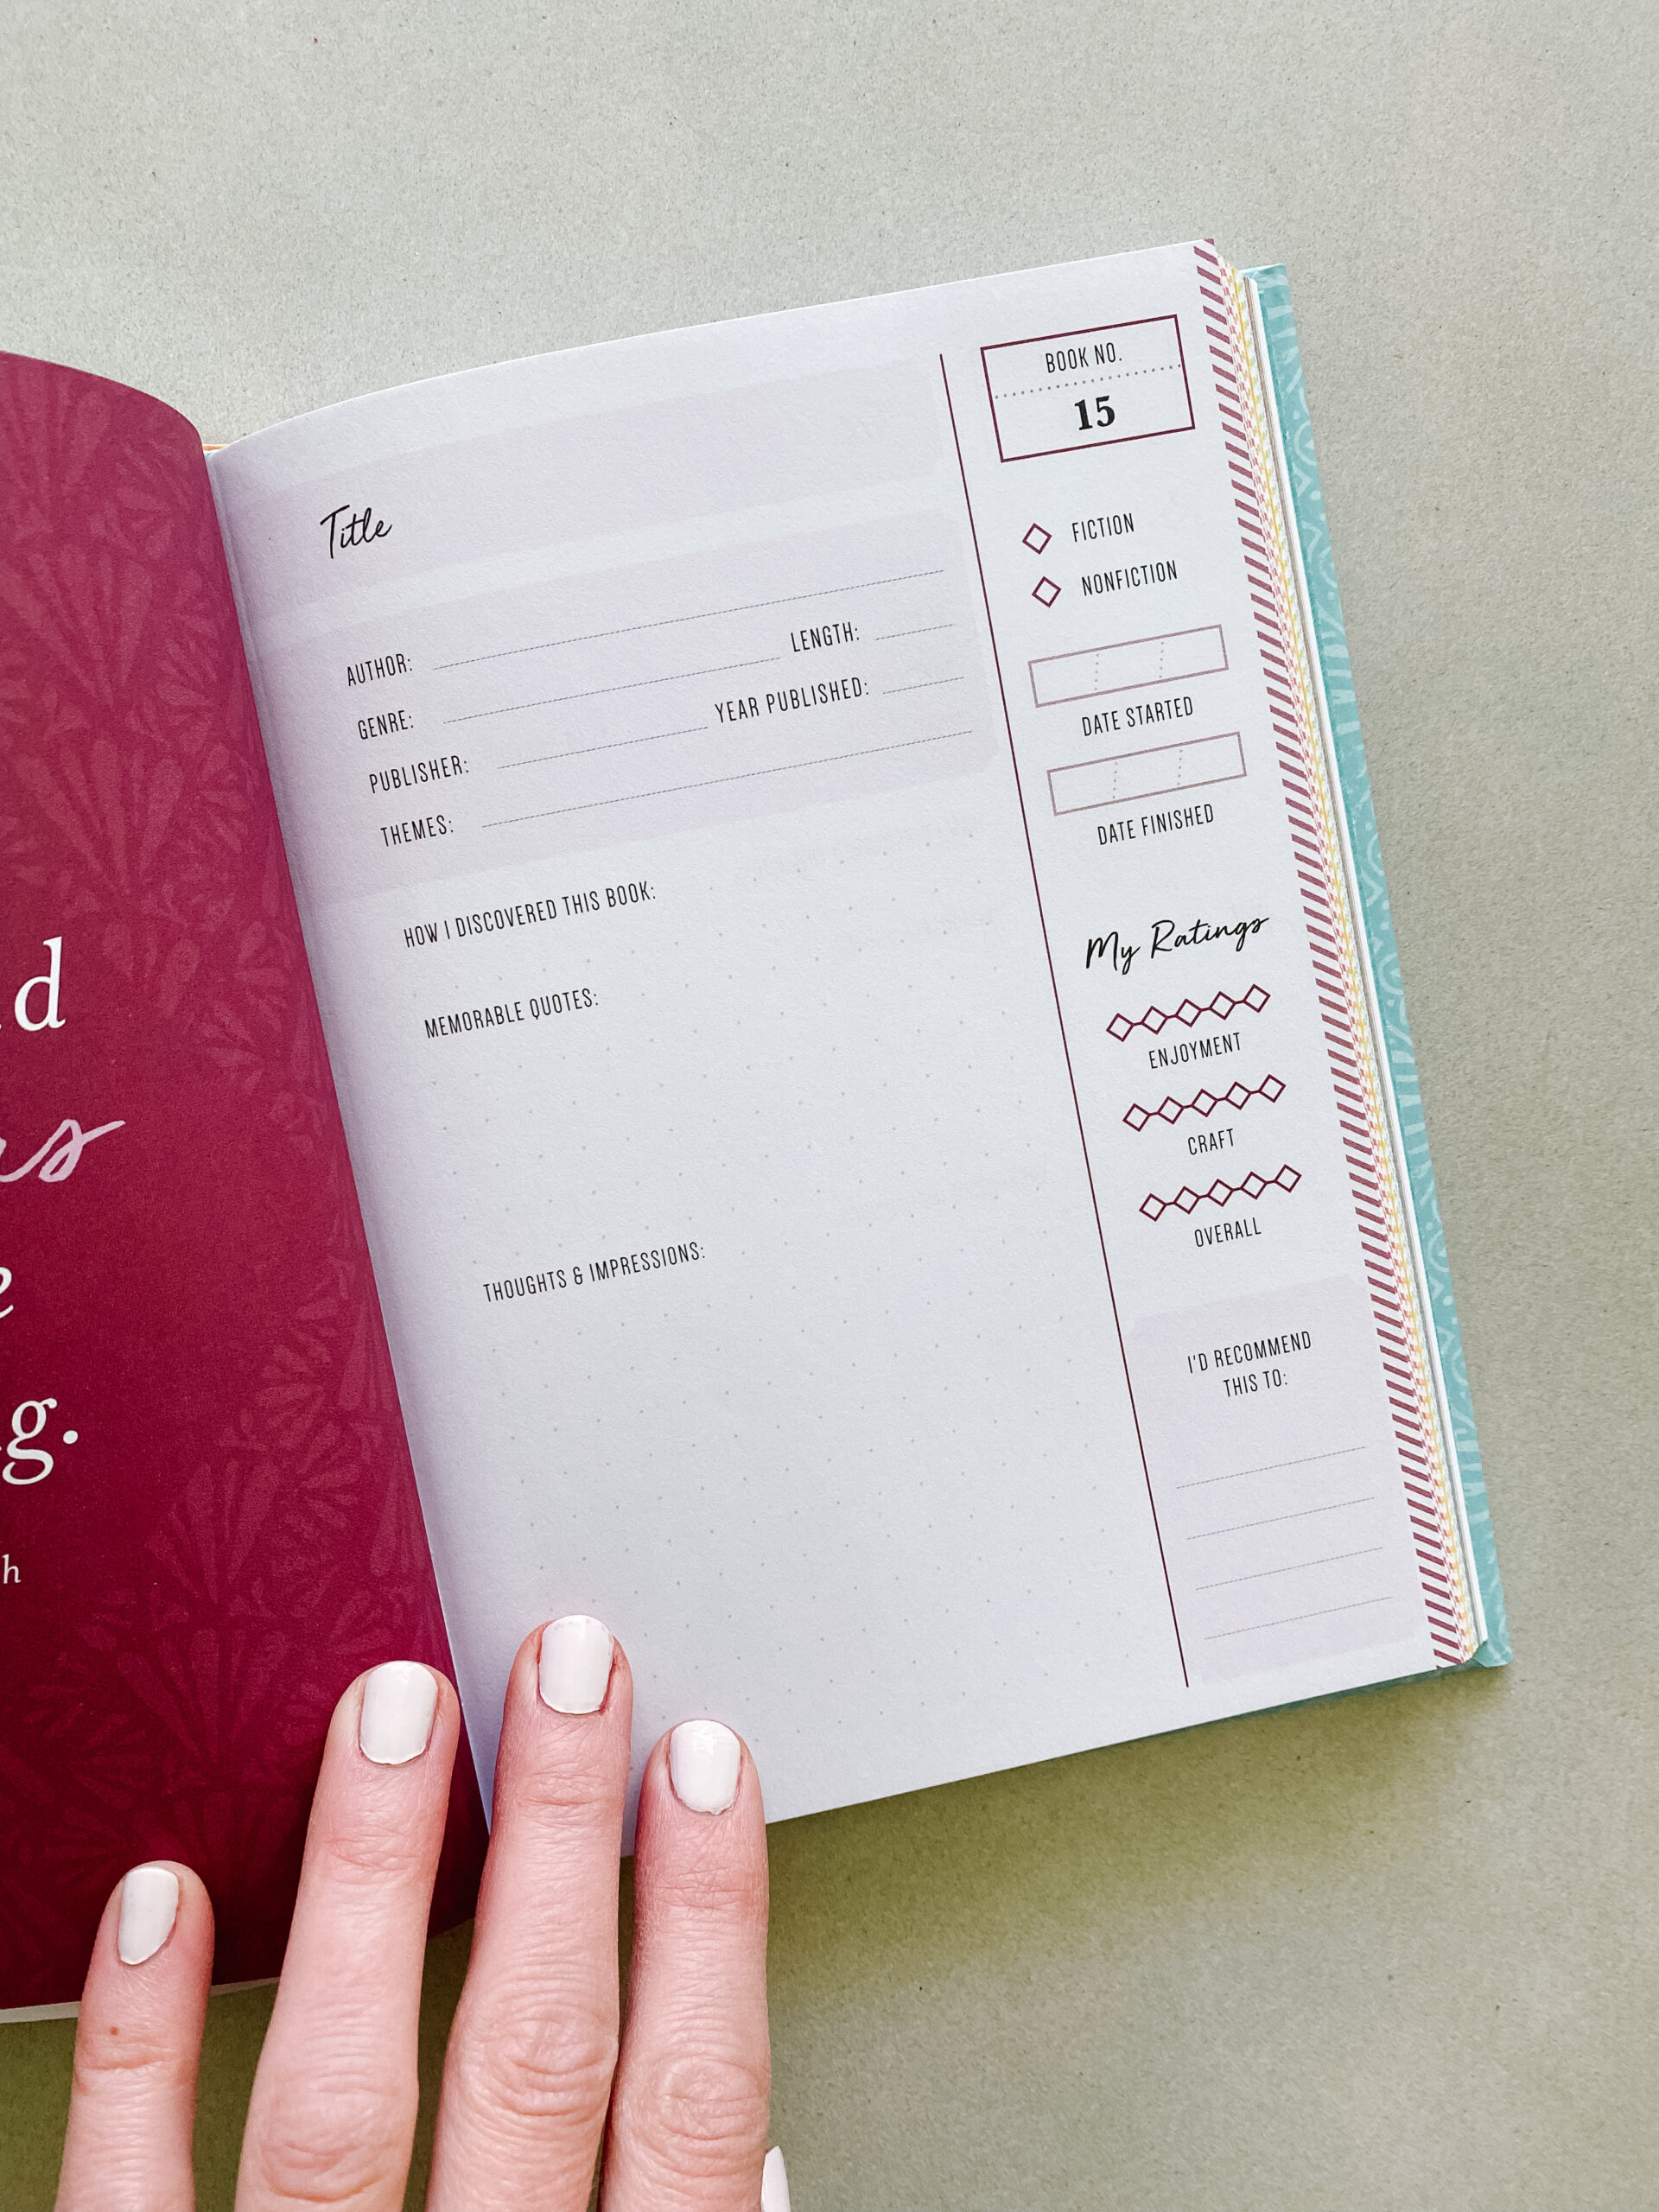 d
e
g.
h
Title
AUTHOR:
GENRE: LENGTH:
PUBLISHER: YEAR PUBLISHED:
THEMES:
HOW I DISCOVERED THIS BOOK:
MEMORABLE QUOTES:
THOUGHTS & IMPRESSIONS:
BOOK NO.
15
FICTION
NONFICTION
DATE STARTED
DATE FINISHED
My Ratings
ENJOYMENT
CRAFT
OVERALL
I'D RECOMMEND
THIS TO: